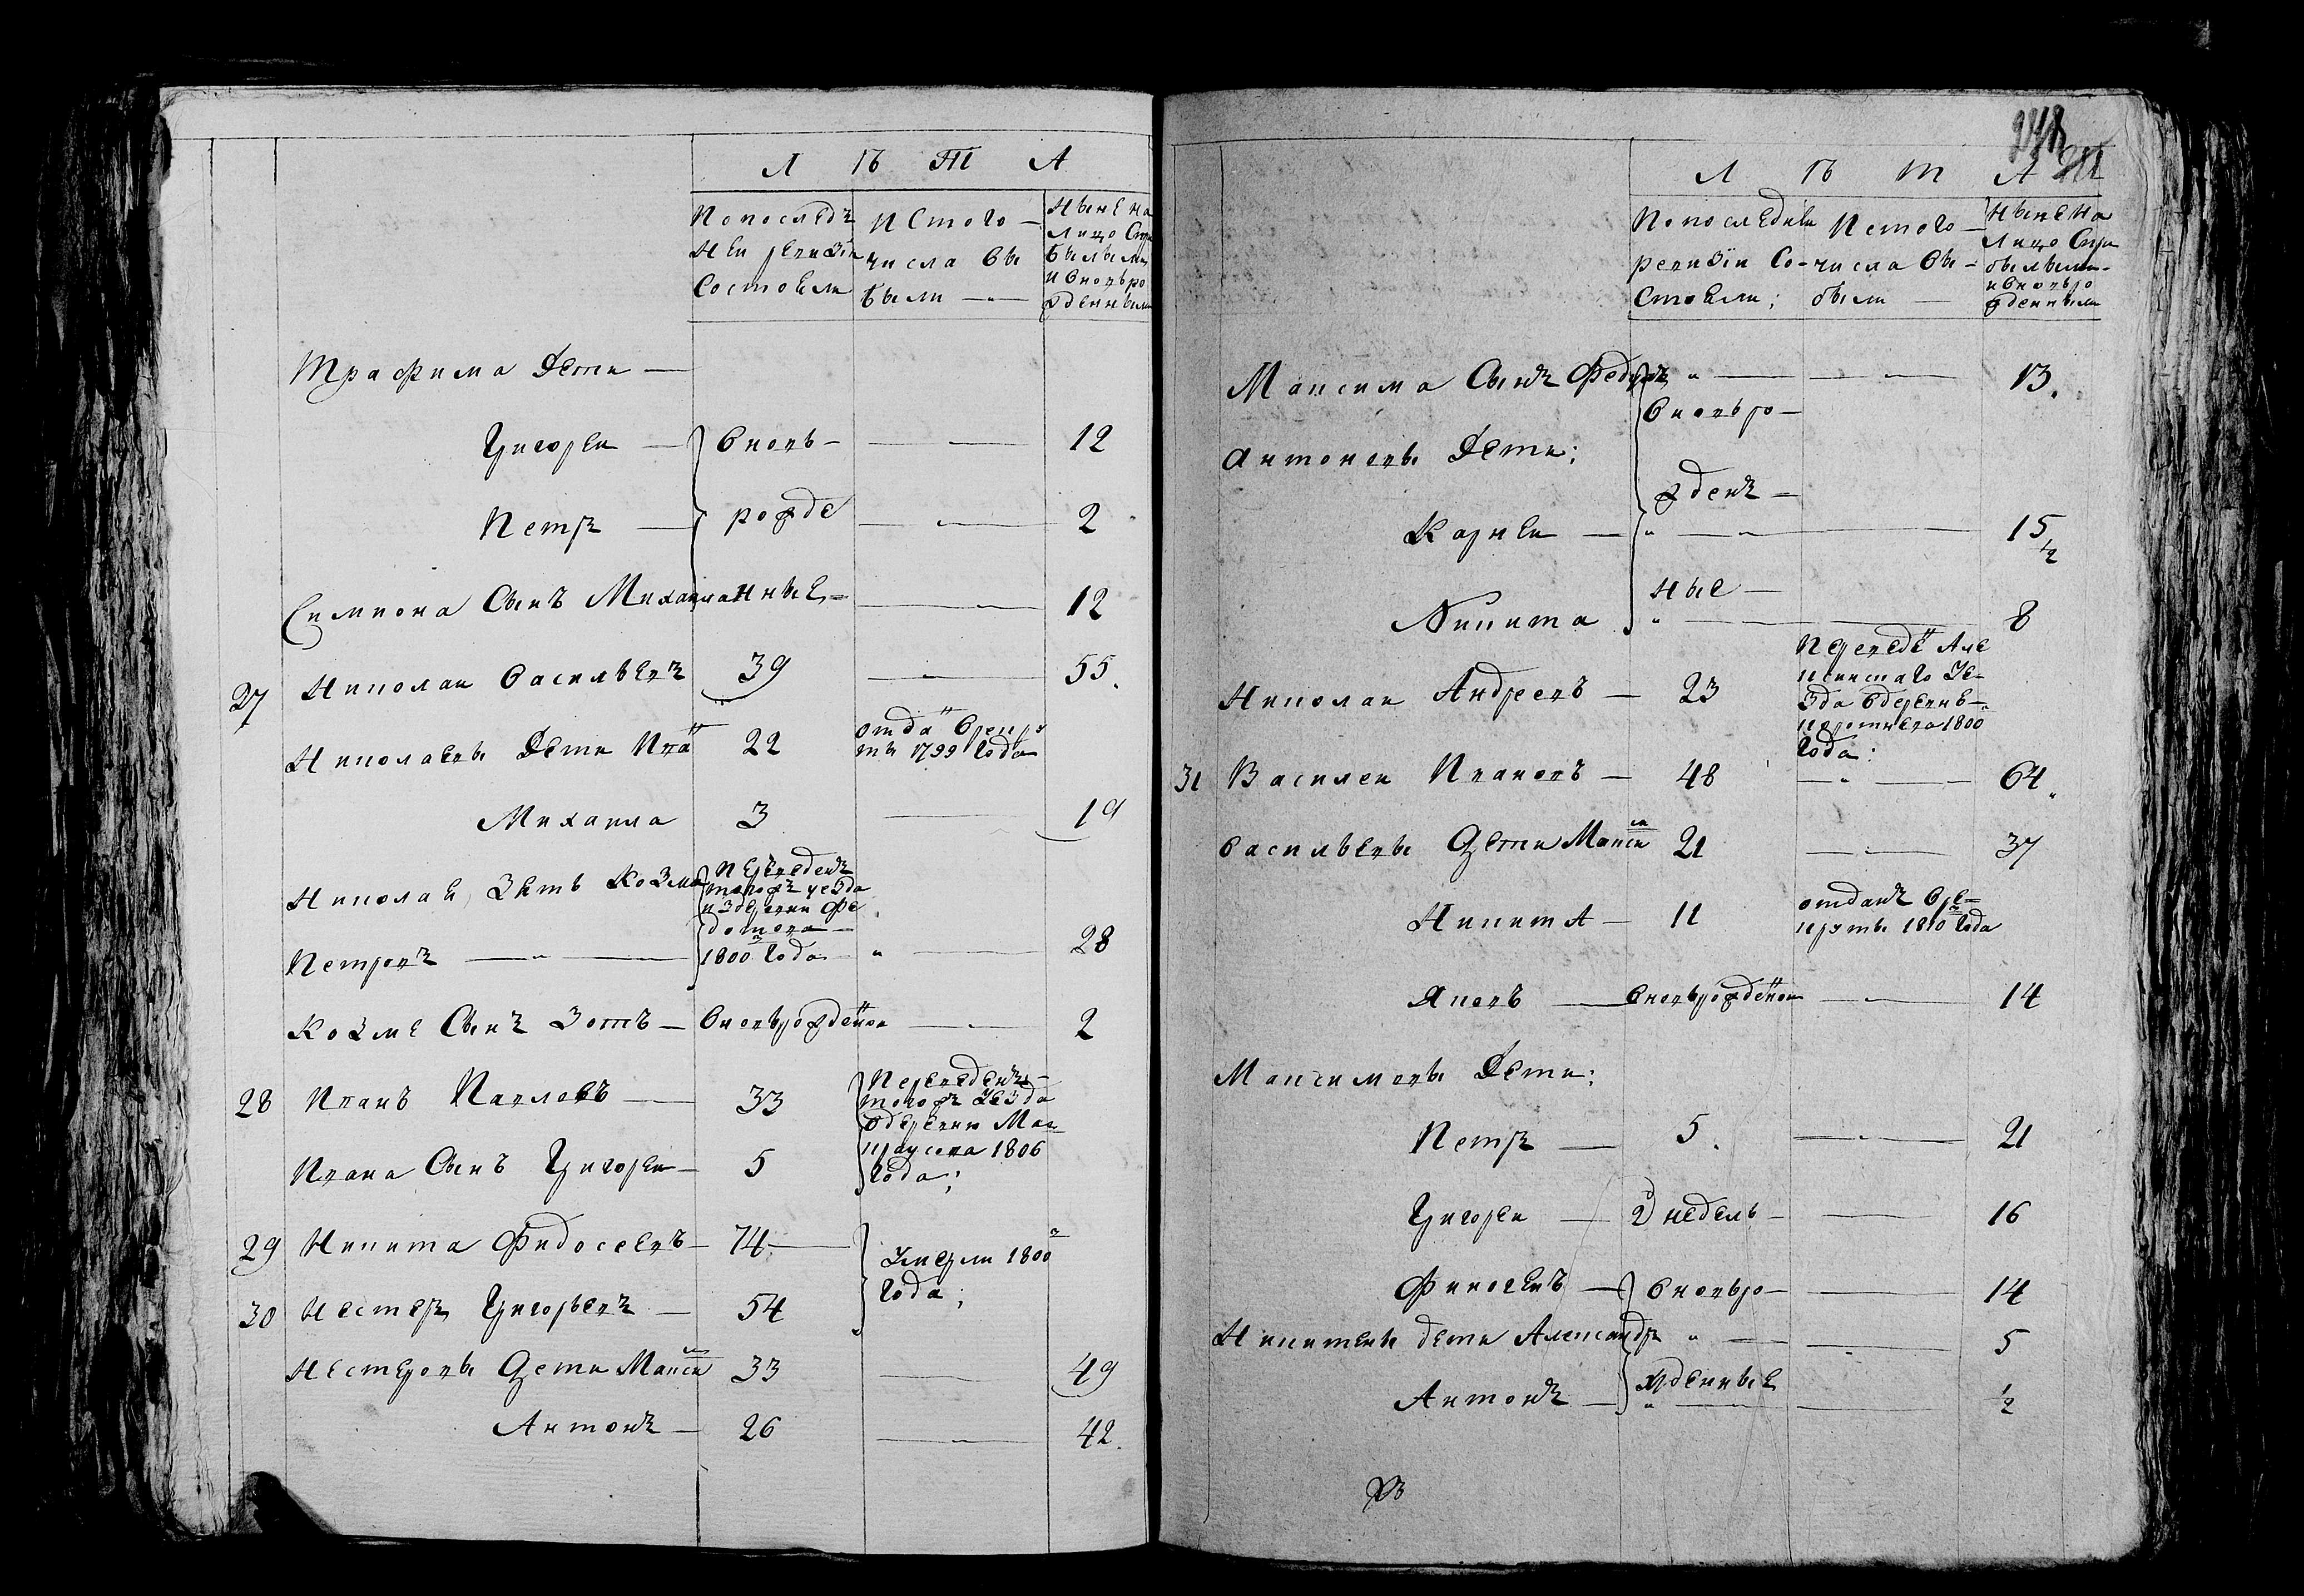 Л Ѣ Т А
Попоследъ
ней ревизіи
Состояли
Истого
числа вы
были
Ныне на
лицо Спри
былыми
ивновьро
жденными
Трафима Дети
Григорей Вновь 12
Петръ рожде 2
Симиона Сынъ Михаила нные 12
27 Николай Васильевъ 39 55
Николаевы Дети Ива 22 отда Врекру
ты 1799 года
Михаила 3 19
Николая Зять Козма Переведенъ
тогожъ уезда
издеревни Фе
дотова
Петровъ 1800 года 28
Козме Сынъ Зотъ Вновьрожденой 2
28 Иванъ Павловъ 33 Переведенъ
тогожъ Уезда
вдеревню
Ивана Сынъ Григорей 5 1806
года;
29 Никита Фидосеевъ 74 Умерли 1800
года;
30 Нестеръ Григорьевъ 54
Нестеровы Дети Макси 33 49
Антонъ 26 42
Л Ѣ Т А
Попоследней
ревизіи Со-
Стояли;
Истого
числа вы-
были
Ныне на
лицо Спри
былыми
ивновьро
жденными
Максима Сынъ Федоръ 13
Вновьро-
Антоновы Дети;
жден
Карней 15 1/2
ные
Никита 8
Николай Андреевъ 23 Переведе Але
ксинскаго Уе-
зда вдеревню
1800
года:
31 Василей Ивановъ 48 64
Васильевы Дети Макси 21 37
Никита 11 отданъ Вре-
круты 1810 года
Яковъ Вновьрожденой 14
Максимовы Дети;
Петръ 5 21
Григорей 2 недель 16
Финогенъ Вновьро 14
Никитины дети Александръ 5
жденные
Антонъ 1/2